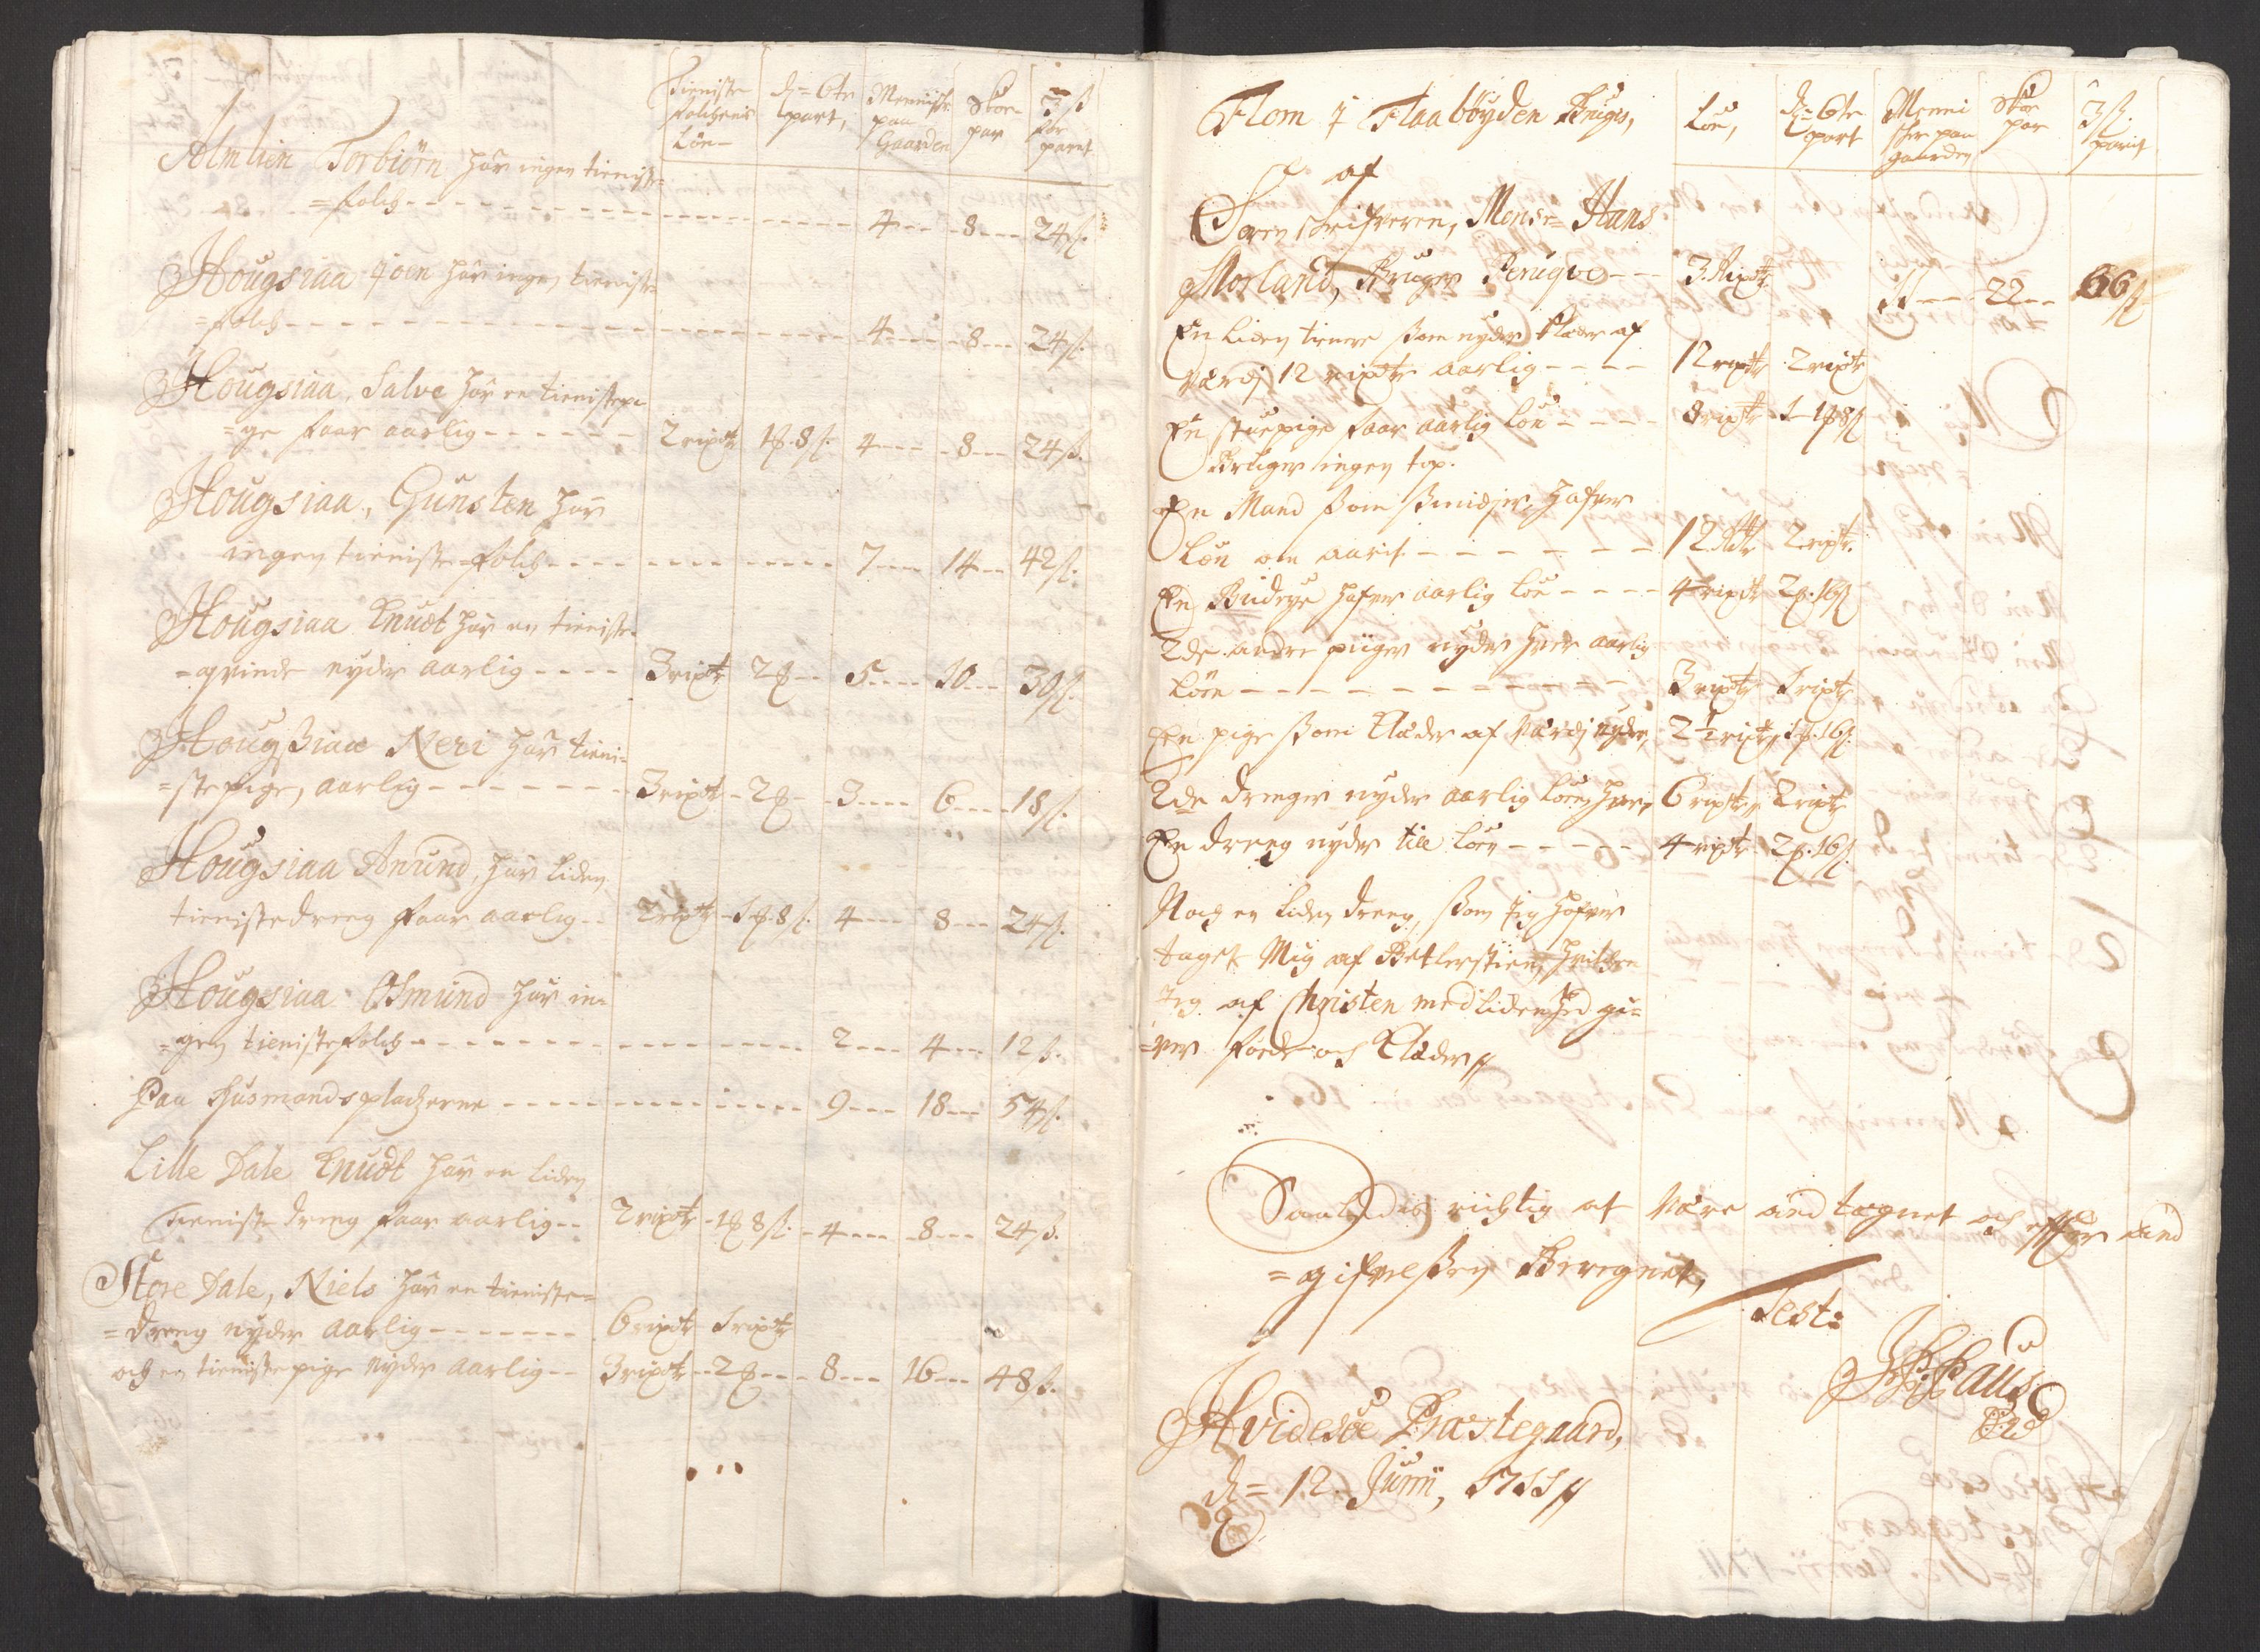 Tieniste folchenis Lön | d= 6te part, | Mennisk: paa Gaarden | Skoe par | 3 ß for paret
Almlien Torbiörn har ingen tieniste=
=folch - - - 4 - - 8 - - 24 ß.
Hougsiaa Joen har ingen tieniste=
=folch - - - 4 - - 8 - - 24 ß.
Hougsiaa, Salve har en tienistepi=
=ge faar aarlig - - - 2 ripdr 1 ₰. 8 ß. 4 - - 8 - - 24 ß.
Hougsiaa, Gunsten har
ingen tieniste folch - - - 7 - - 14 - - 42 ß.
Hougsiaa Knudt har en tieniste=
=qvinde nyder aarlig - - - 3 ripdr 2 ₰ - - 5 - - 10 - - 30 ß.
Hougsiaa Neri har tieni=
=stepige, aarlig - - - 3 ripdr - 2 ₰ - - 3 - - 6 - - 18 ß.
Hougsiaa Anund, har liden
tienistedreng faar aarlig - - 2 ripdr - 1 ₰. 8 ß. 4 - - 8 - - 24 ß.
Hougsiaa Osmund har in=
=gen tienistefolch - - - 2 - - 4 - - 12 ß.
Paa husmandspladzerne - - - 9 - - 18 - - 54 ß.
Lille Dale Knudt har en liden
tieniste dreng faar aarlig - - 2 ripdr - 1 ₰ 8 ß. - 4 - - 8 - - 24 ß.
Store Dale, Niels har en tieniste=
=dreng nyder aarlig - - - 6 ripdr 1 ripdr
och en tienistepige nyder aarlig - - 3 ripdr - - 2 ₰ - - 8 - - 16 - - 48 ß.
Flom i Flaabøyden Bruges, | Løn, | d= 6te part | Menni sker paa gaarden | Skoe par | 3 ß. paret
af
Sorenskrifveren, Monsr= Hans
Morland, Bruger Peruqve - - 3 Ripdr 11 - - 22 - - 66 ß
En liden tienere som nyder klæder af
værdj 12 ripdr aarlig - - - 12 ripdr 2 ripdr
En stuepige faar aarlig løn - - - 8 ripdr 1 - 1 ₰ 8 ß
Bruger ingen top.
En Mand som smidjer, hafver
Løn om aaret - - - 12 Rdr 2 ripdr.
En Budeye hafver aarlig løn - - - 4 ripdr 2 ₰. 16 ß
2de andre piiger nyder hver aarlig
Löen - - - 3 ripdr 1 ripdr
Een pige som Klæder af værdj nyder, 2 ½ ripdr, 1 ₰. 16 ß.
2de drenger nyder aarlig løn hver, 6 ripdr, 2 ripdr
En dreng nyder till løen - - - 4 ripdr 2 ₰. 16 ß.
Noch en liden dreng, som jeg hafver
taget Mig af Betlerstien, hvilken
jeg af Christen medlidenhed gi=
=ver føede och Klæder
Saaledis rigtig at være andtegnet och efter and
=gifvelsen Beregnet,
Test:
HPaus
Hvidesöe Præstegaard,
d= 12. Junii, 1711